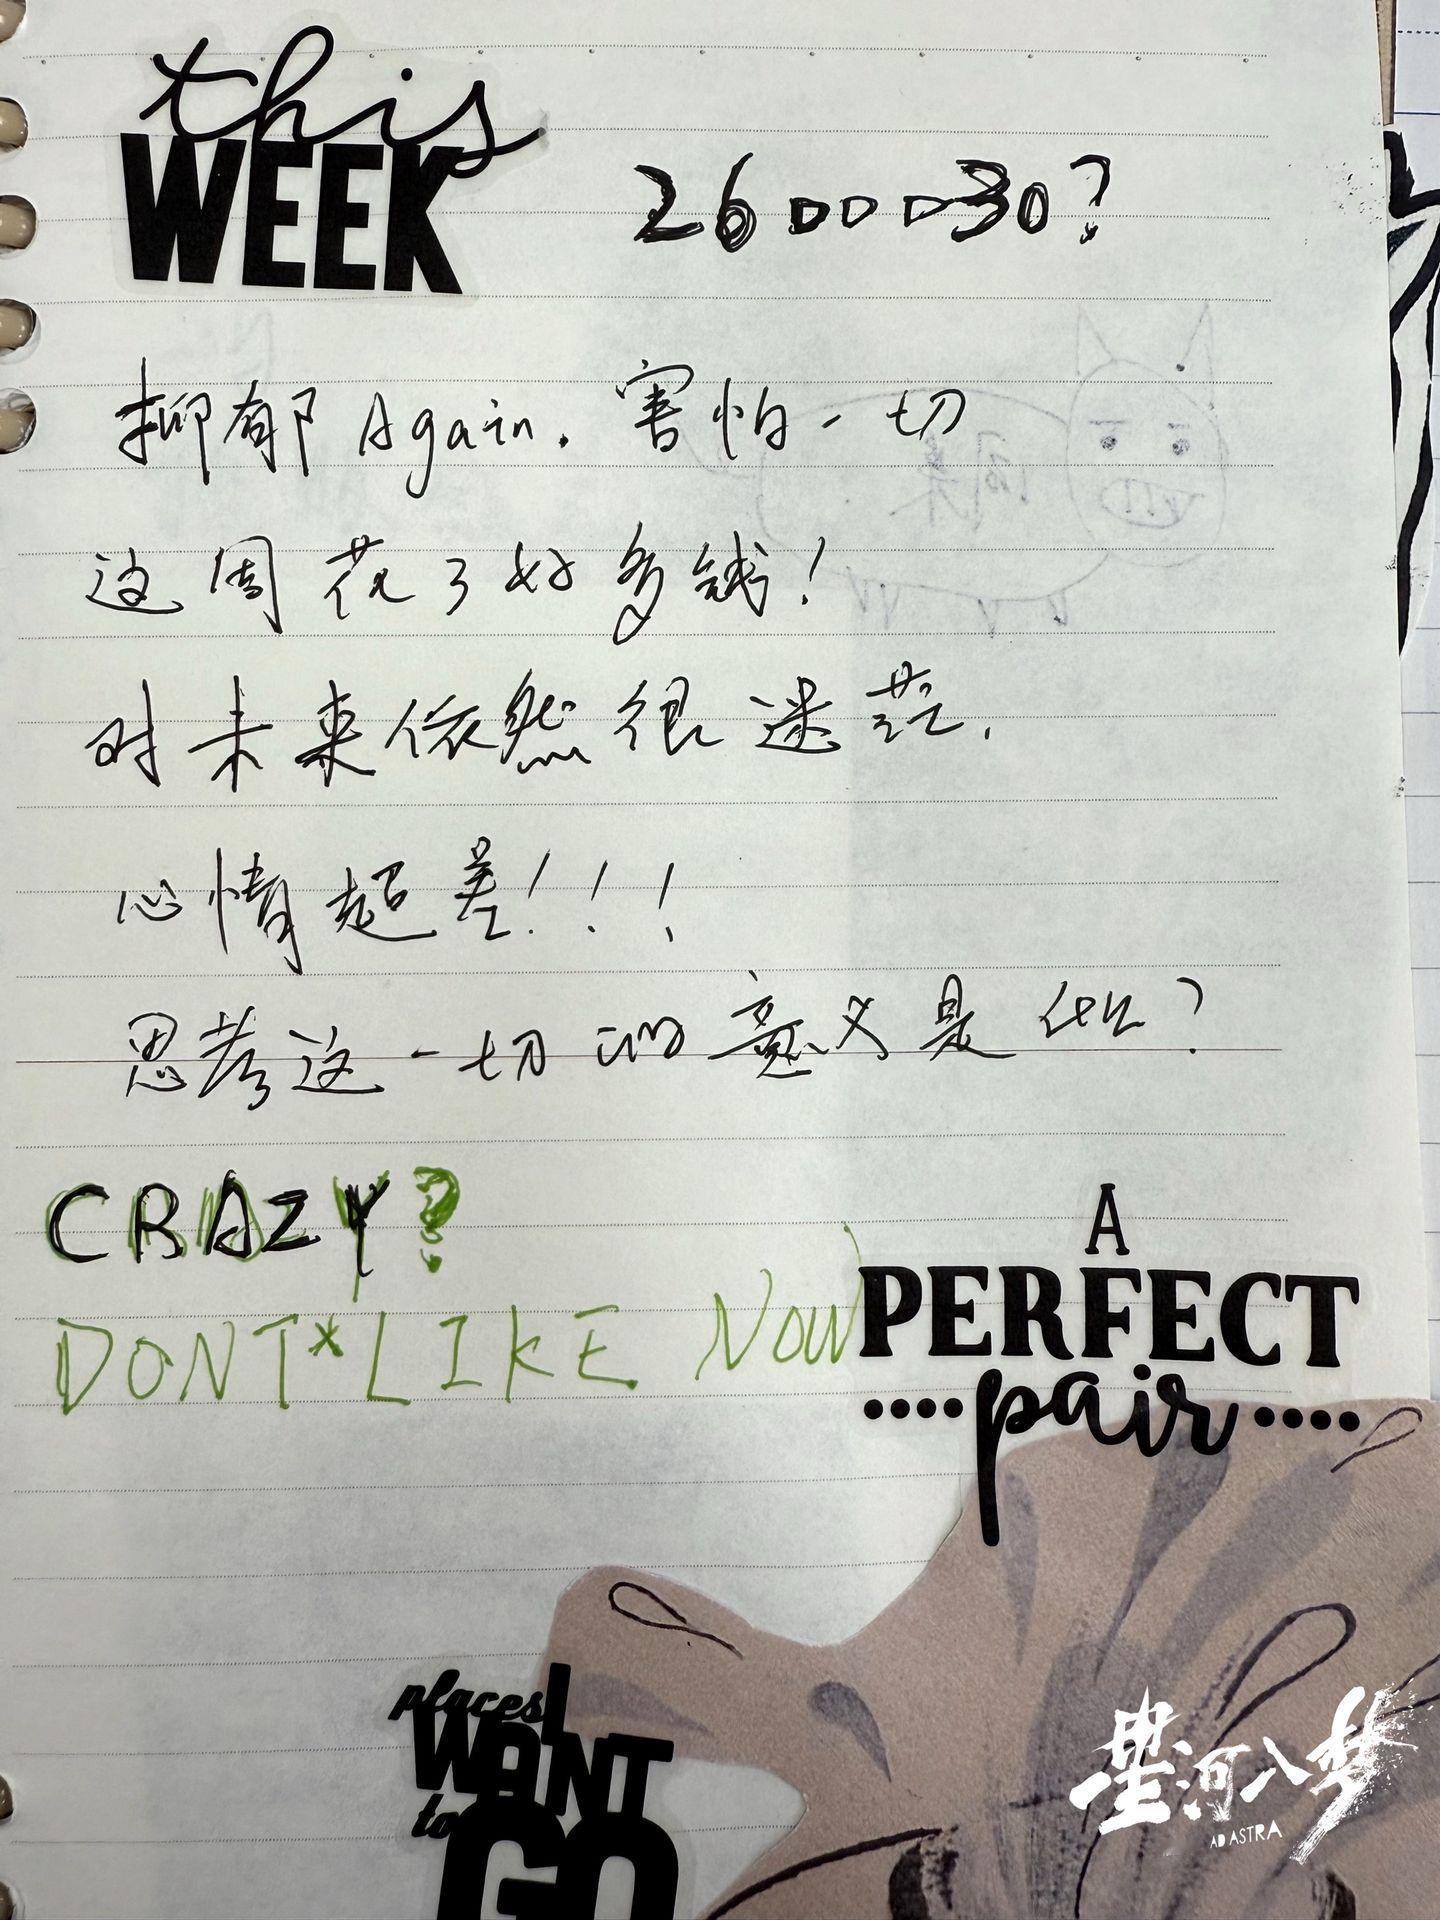 this
WEEK
26000-30?
抑郁Again. 害怕一切
这周花了好多钱!
对未来依然很迷茫.
心情超差!!!
思考这一切的意义是什么?
CRAZY?
DONT*LIKE NOW
A
PERFECT
pair
places I
WANT
to
GO
星河入梦
AD ASTRA